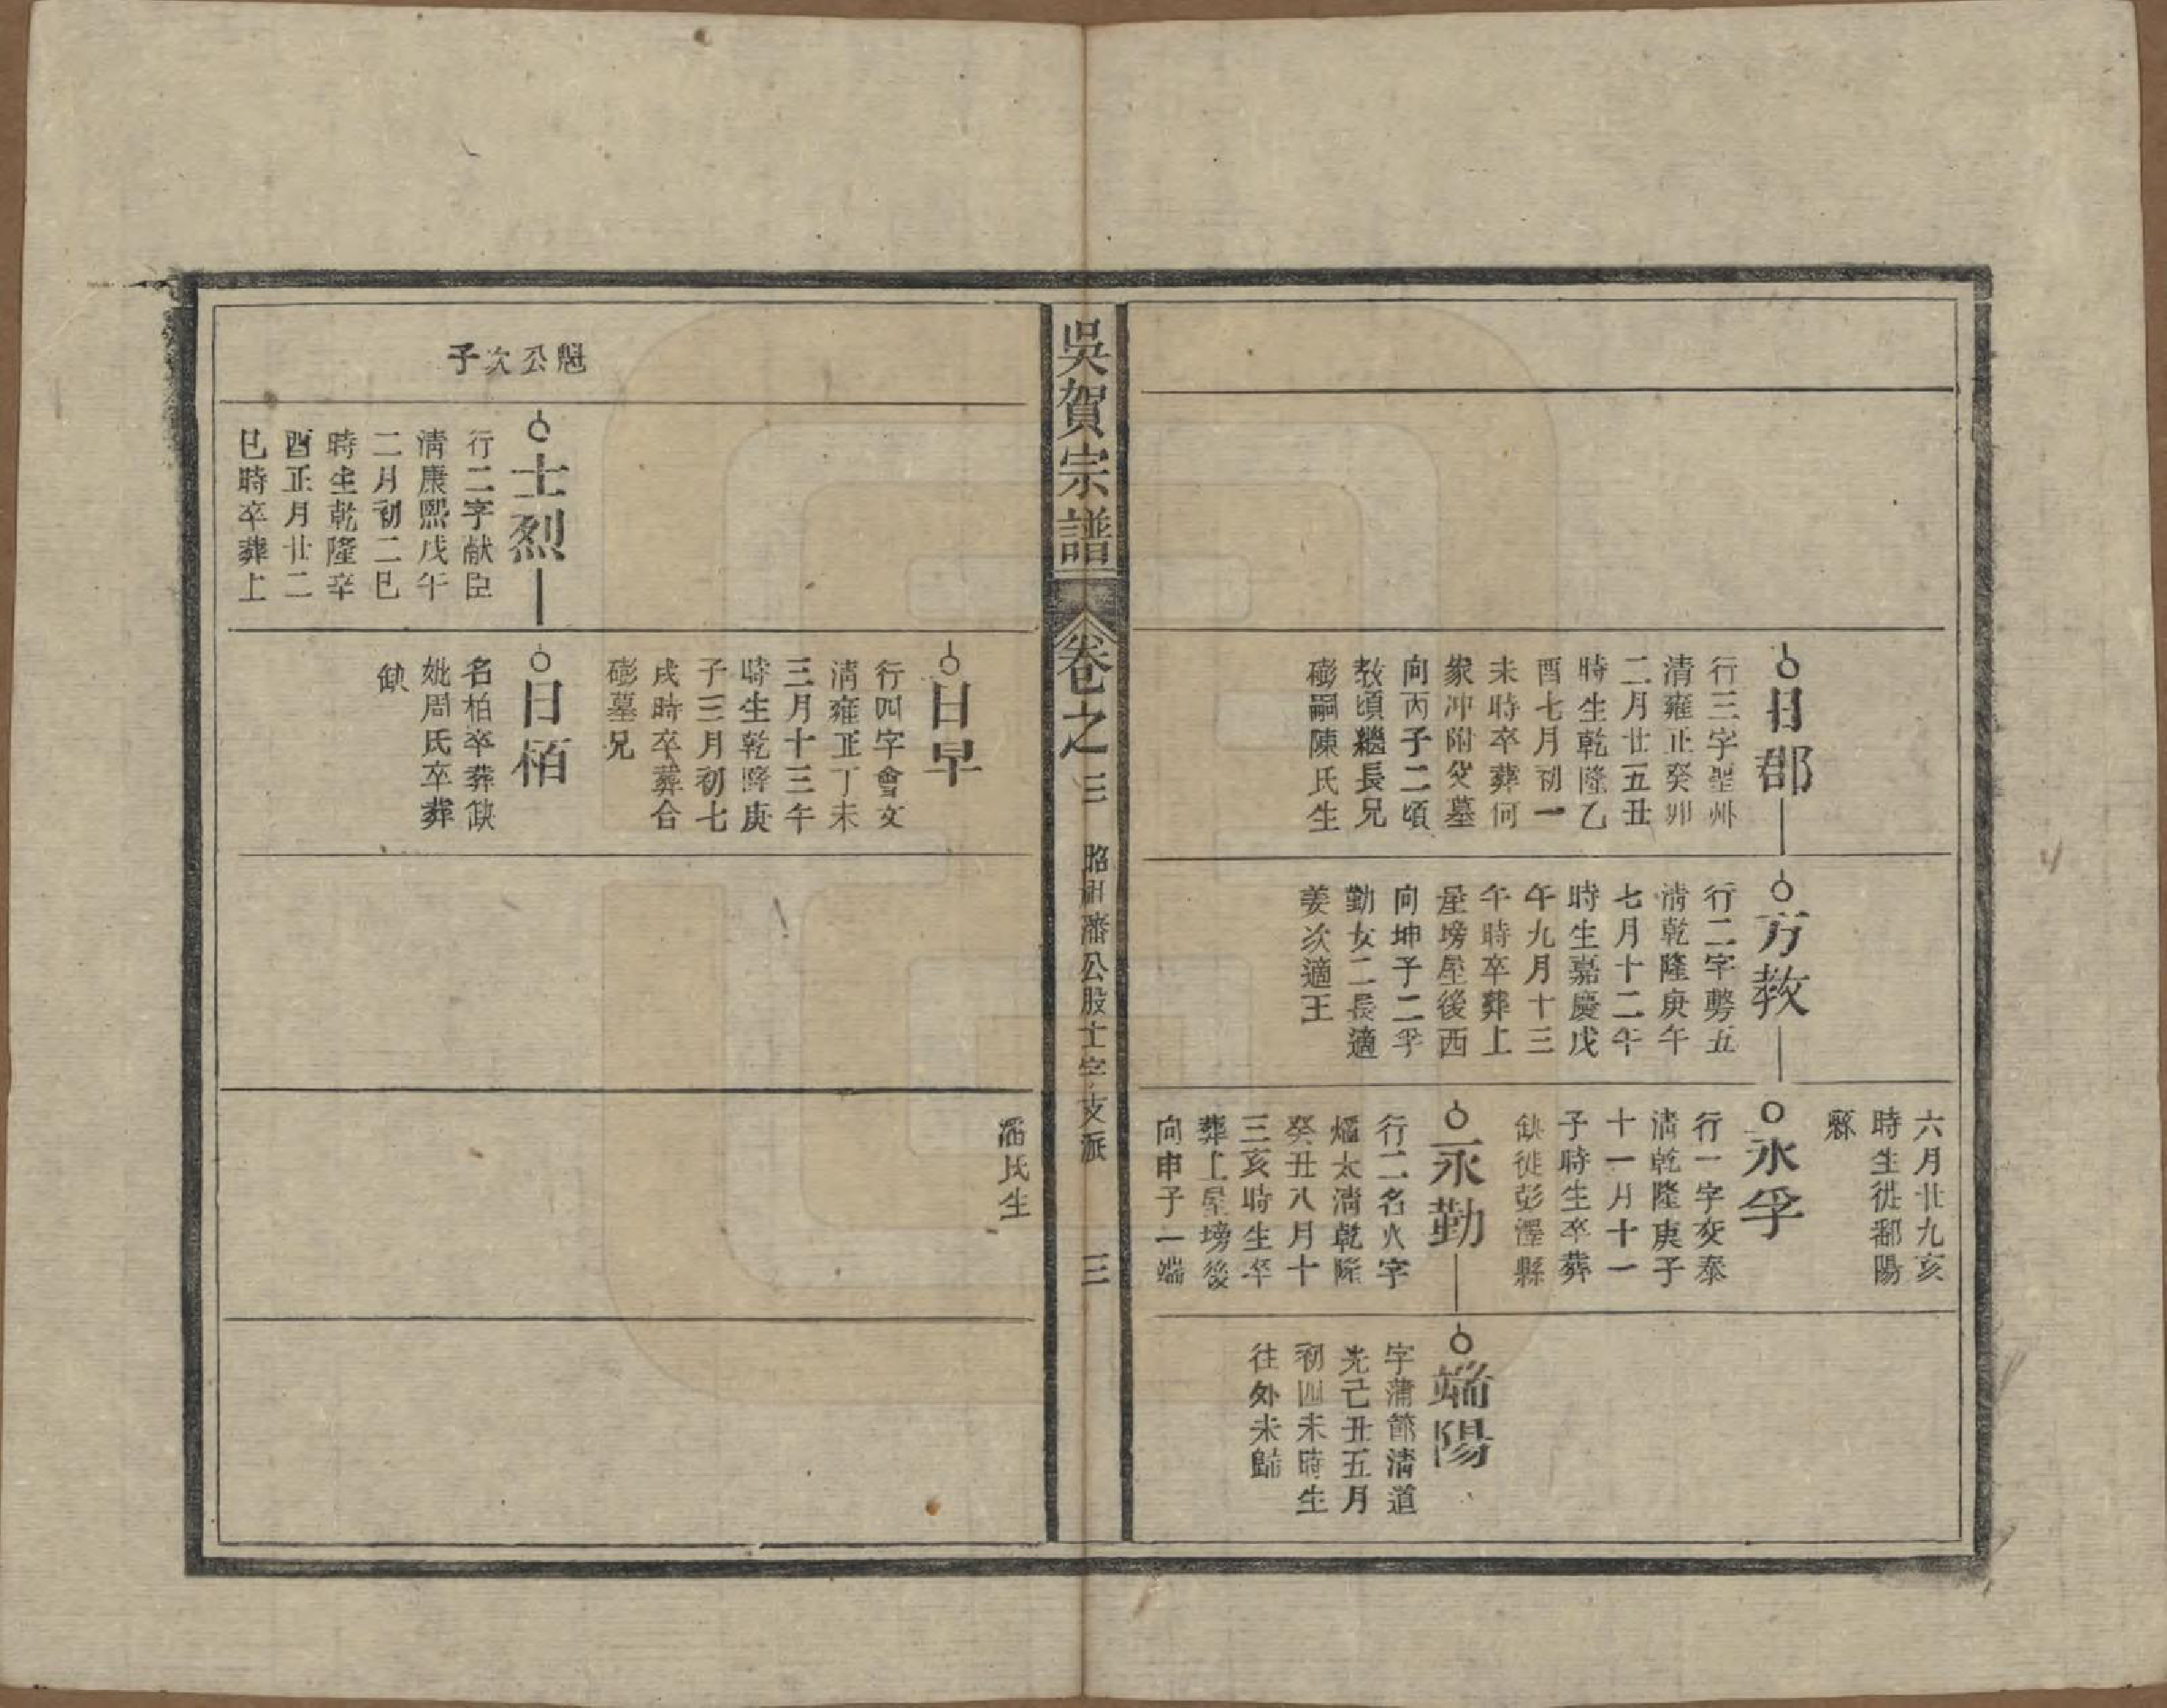 日郡
行三字聖州
清雍正癸卯
二月廿五丑
時生乾隆乙
酉七月初一
未時卒葬何
家冲附父墓
向丙子二頃
教頃繼長兄
彭嗣陳氏生
方教
行二字勞五
清乾隆庚午
七月十二午
時生嘉慶戊
午九月十三
午時卒葬上
屋塝屋後西
向坤子二孚
勤女二長適
姜次適王
六月廿九亥
時生徙鄱陽
縣
永孚
行一字交泰
清乾隆庚子
十一月十一
子時生卒葬
缺徙彭澤縣
永勤
行二名火字
爔太清乾隆
癸丑八月十
三亥時生卒
葬上屋塝後
向申子一端
端陽
字蒲節清道
光己丑五月
初四未時生
往外未歸
吳賀宗譜
卷之三
昭祖潘公股士字支派
三
日早
行四字會文
清雍正丁未
三月十三午
時生乾隆庚
子三月初七
戌時卒葬合
彭墓兄
潘氏生
魁公次子
士烈
行二字献臣
清康熙戊午
二月初二巳
時生乾隆辛
酉正月廿二
巳時卒葬上
日栢
名柏卒葬缺
妣周氏卒葬
缺